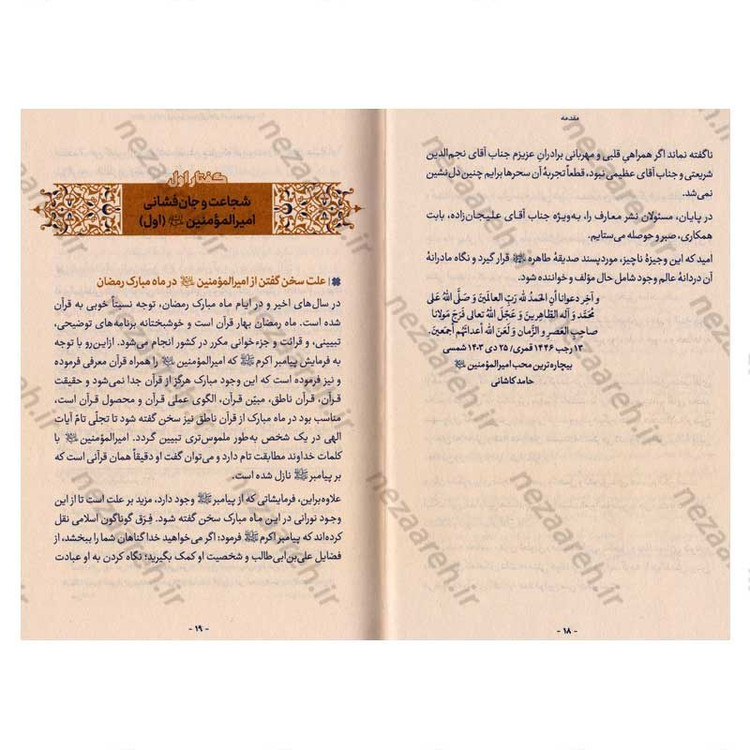 مقدمه
ناگفته نماند اگر همراهیِ قلبی و مهربانی برادرانِ عزیزم جناب آقای نجم‌الدین
شریعتی و جناب آقای عظیمی نبود، قطعاً تجربهٔ آن سحرها برایم چنین دل‌نشین
نمی‌شد.
در پایان، مسئولان نشر معارف را، به‌ویژه جناب آقای علیجان‌زاده، بابت
همکاری، صبر و حوصله می‌ستایم.
امید که این وجیزهٔ ناچیز، موردپسند صدیقهٔ طاهره قرار گیرد و نگاه مادرانهٔ
آن دردانهٔ عالم وجود شامل حال مؤلف و خواننده شود.
و آخر دعوانا أن الحمدُ لله ربّ العالمین و صلّی اللهُ علی
محُمّد و آله الطاهرین و عجّل اللهُ تعالی فرج مولانا
صاحب العصرِ و الزّمان و لعن الله أعدائهم أجمعین.
۱۳ رجب ۱۴۴۶ قمری/ ۲۵ دی ۱۴۰۳ شمسی
بیچاره‌ترین محب امیرالمؤمنین
حامد کاشانی
- ۱۸ -
گفتار اول
شجاعت و جان‌فشانی
امیرالمؤمنین (اول)
علت سخن گفتن از امیرالمؤمنین در ماه مبارک رمضان
در سال‌های اخیر و در ایام ماه مبارک رمضان، توجه نسبتاً خوبی به قرآن
شده است. ماه رمضان بهار قرآن است و خوشبختانه برنامه‌های توضیحی،
تبیینی، و قرائت و جزءخوانی مکرر در کشور انجام می‌شود. ازاین‌رو با توجه
به فرمایش پیامبر اکرم که امیرالمؤمنین را همراه قرآن معرفی فرموده
و نیز فرموده است که این وجود مبارک هرگز از قرآن جدا نمی‌شود و حقیقت
قرآن، قرآن ناطق، مبیّن قرآن، الگوی عملی قرآن و محصول قرآن است،
مناسب بود در ماه مبارک از قرآن ناطق نیز سخن گفته شود تا تجلّی تامّ آیات
الهی در یک شخص به‌طور ملموس‌تری تبیین گردد. امیرالمؤمنین با
کلمات خداوند مطابقت تام دارد و می‌توان گفت او دقیقاً همان قرآنی است که
بر پیامبر نازل شده است.
علاوه‌براین، فرمایشاتی که از پیامبر وجود دارد، مزید بر علت است تا از این
وجود نورانی در این ماه مبارک سخن گفته شود. فِرَق گوناگون اسلامی نقل
کرده‌اند که پیامبر اکرم فرمود: اگر می‌خواهید خدا گناهان شما را ببخشد، از
فضایل علی‌بن‌ابی‌طالب و شخصیت او کمک بگیرید؛ نگاه کردن به او عبادت
- ۱۹ -
nezaareh.ir
nezaareh.ir
nezaareh.ir
nezaareh.ir
nezaareh.ir
nezaareh.ir